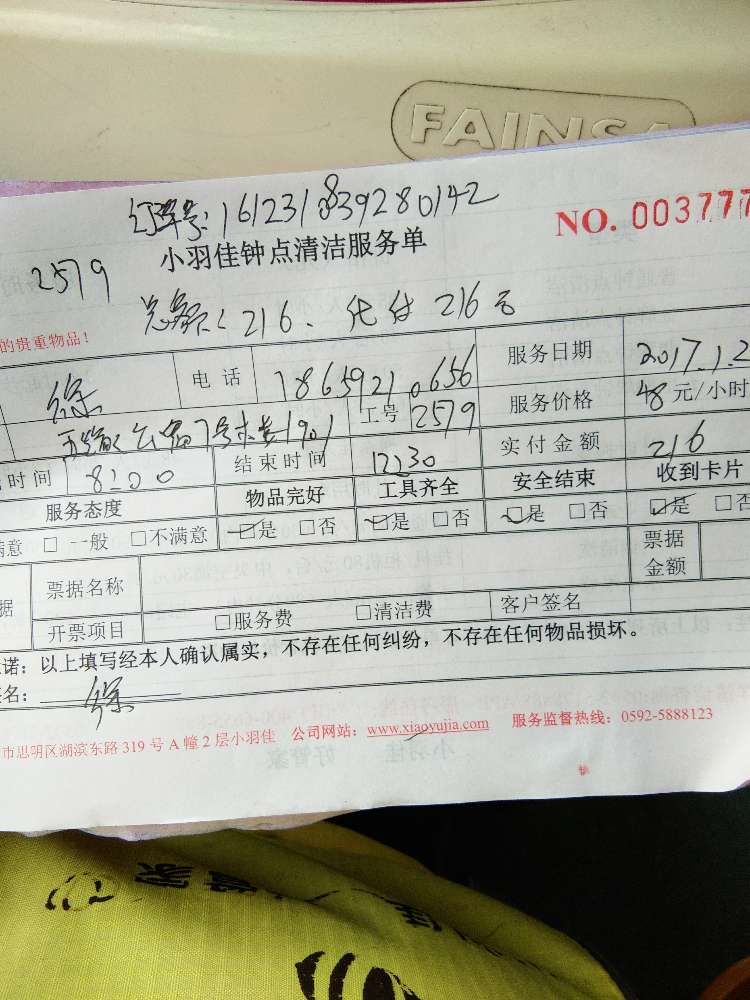 FAINSA
订单号:161231839280142
NO. 003777
小羽佳钟点清洁服务单
2579
总额:216、代付216元
的贵重物品!
徐 电话 18659210656 服务日期 2017.1.2
7号 1901 工号 2579 服务价格 48元/小时
时间 8:00 结束时间 12:30 实付金额 216
服务态度 物品完好 工具齐全 安全结束 收到卡片
满意 □一般 □不满意 ☑是 □否 ☑是 □否 ☑是 □否 ☑是 □否
据 票据名称 票据金额
开票项目 □服务费 □清洁费 客户签名
诺:以上填写经本人确认属实,不存在任何纠纷,不存在任何物品损坏。
签名: 徐
市思明区湖滨东路319号A幢2层小羽佳 公司网站:www.xiaoyujia.com 服务监督热线:0592-5888123
小羽佳 好管家
家